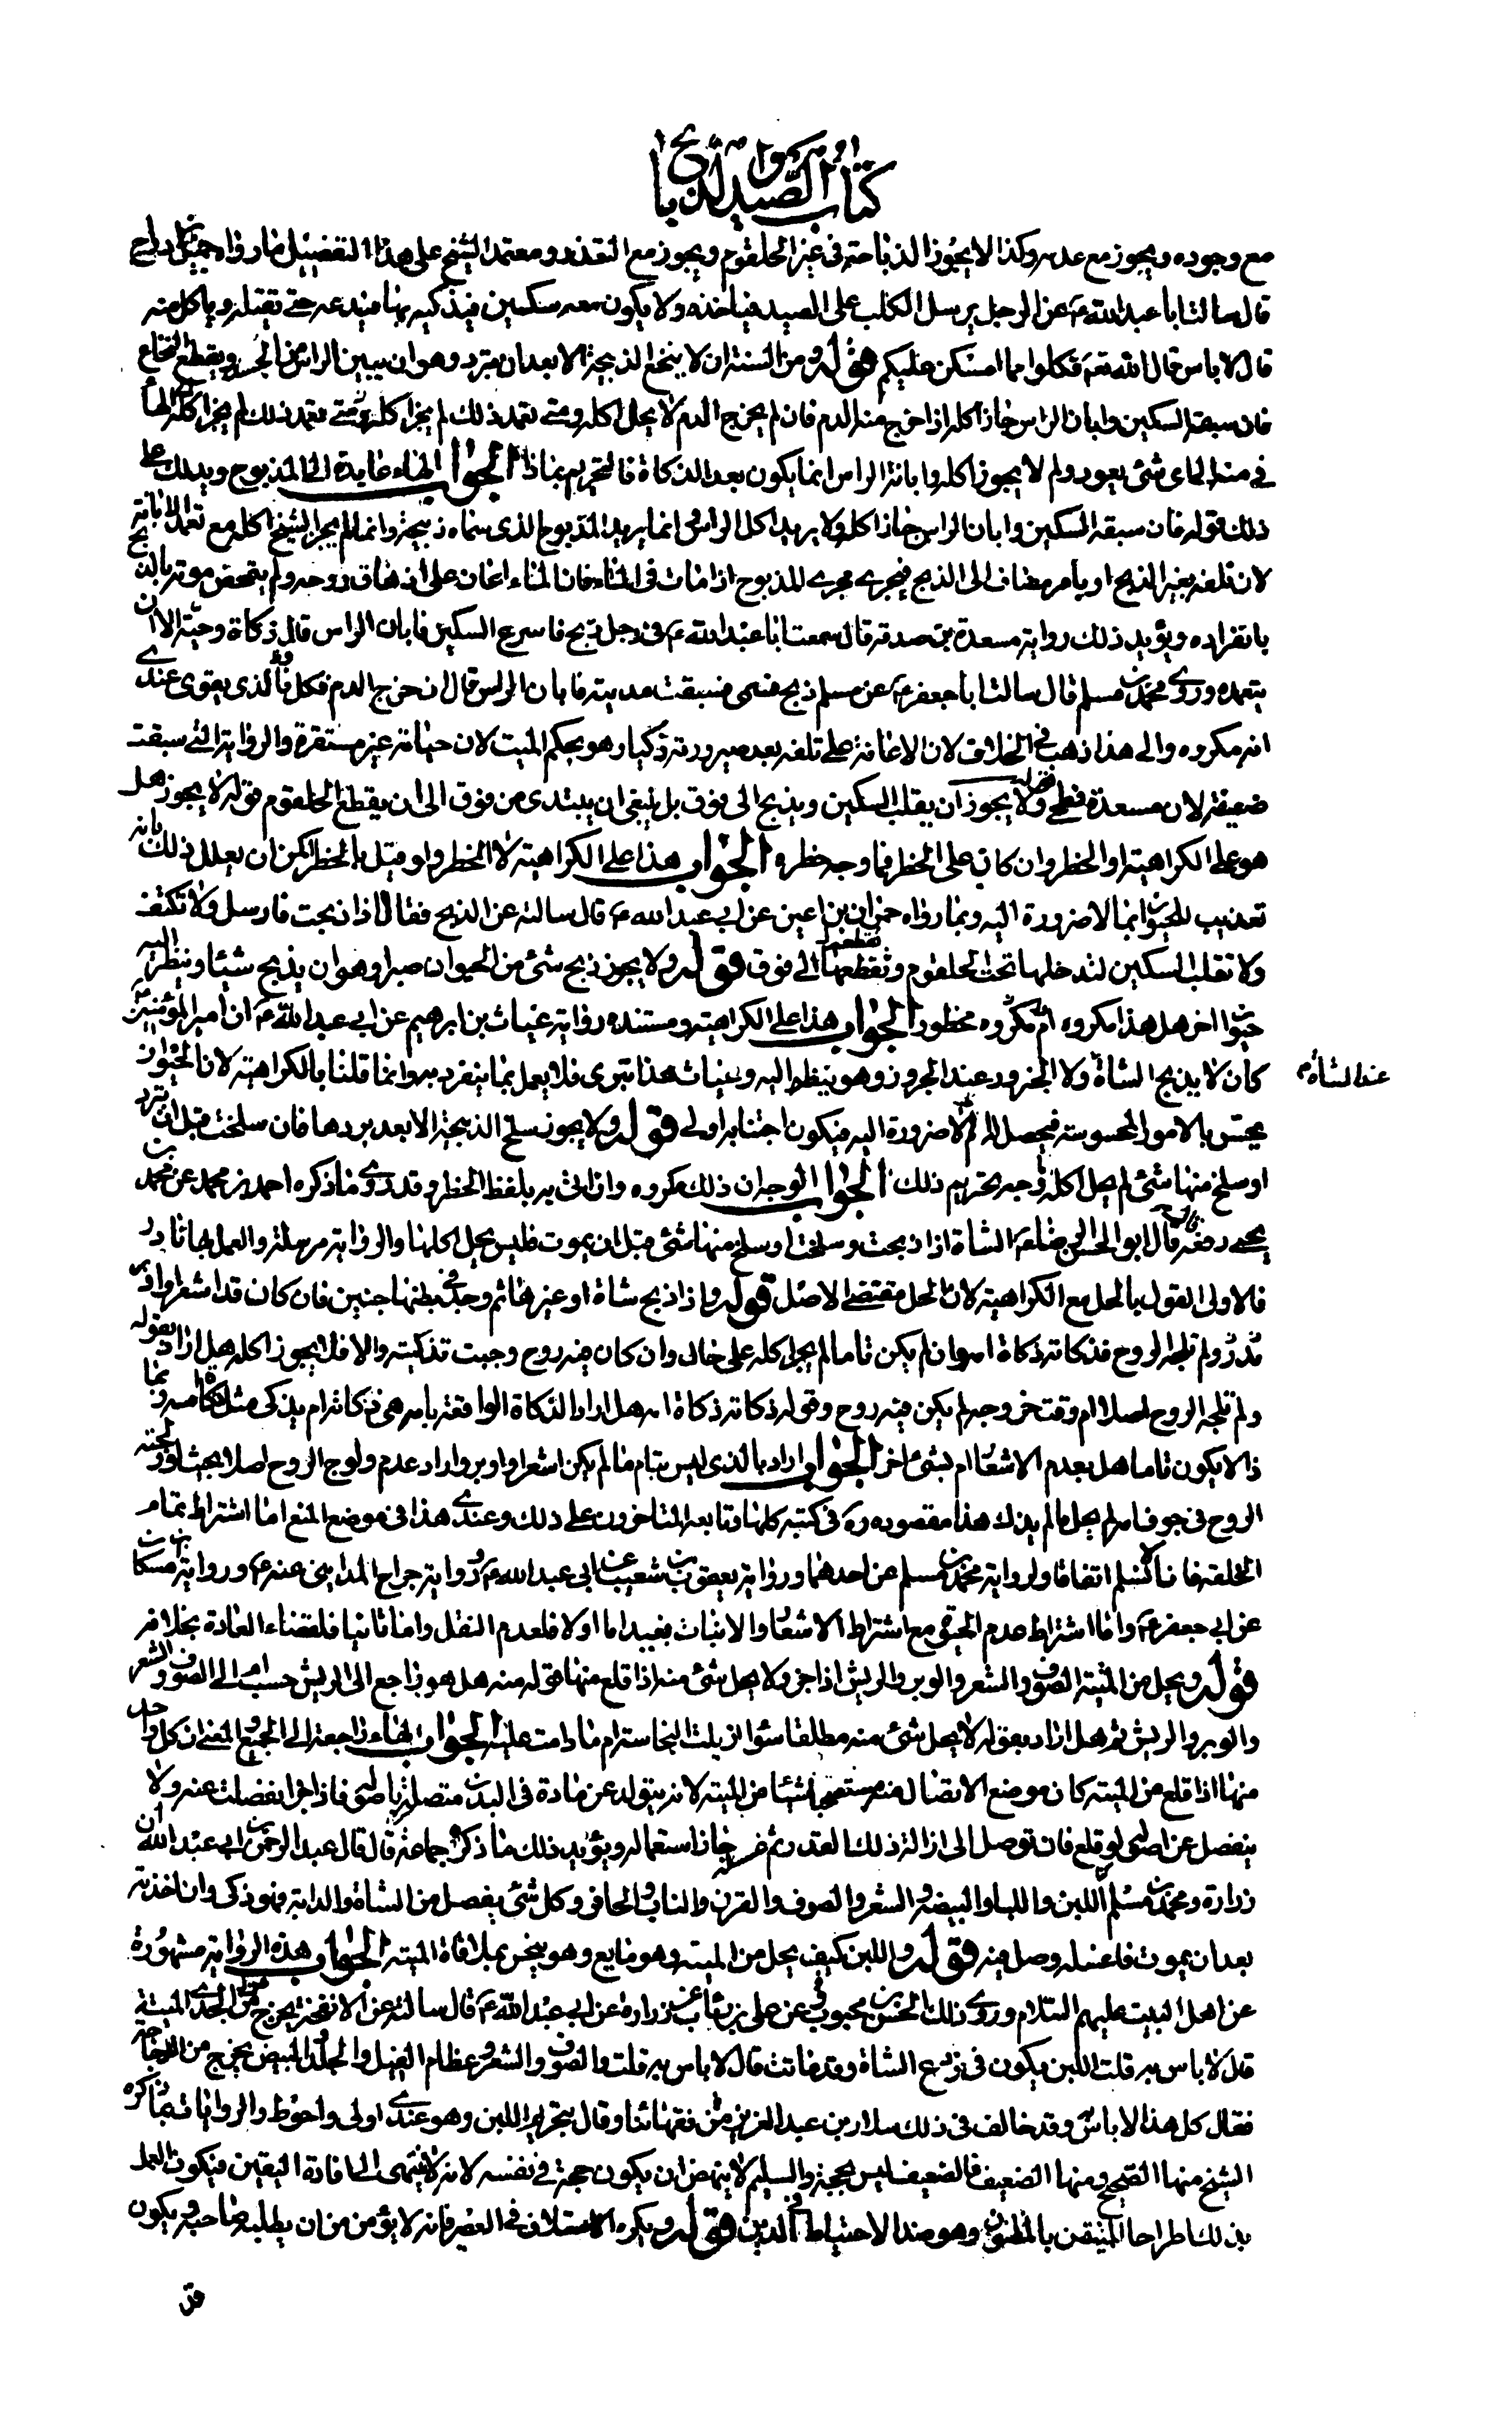 كتاب الصيد والذبائح
مع وجوده ويجوز مع عدمه وكذا لا يجوز الذباحة في غير الحلقوم ويجوز مع التعذر ومعتمد الشيخ على هذا التفصيل ما رواه جميل بن دراج
قال سالت ابا عبد الله ع عن الرجل يرسل الكلب على الصيد فياخذه ولا يكون معه سكين فيذكيه بها فيدعه حتى يقتله وياكل منه
قال لا باس قال الله تع فكلوا مما امسكن عليكم قوله ومن السنة ان لا ينخع الذبيحة الا بعد ان تبرد وهو ان يبين الراس من الجسد ويقطع النخاع
فان سبقه السكين وابان الراس جاز اكله اذا خرج منه الدم فان لم يخرج الدم لا يحل اكله ومتى تعمد ذلك لم يجز اكله ومتى تعمد ذلك لم يجز اكله الهاء
في منه الى اي شئ يعود ولم لا يجوز اكله وابانة الراس انما يكون بعد الذكاة فالتحريم بماذا الجواب الهاء عايدة الى المذبوح ويدلك على
ذلك قوله فان سبقه السكين وابان الراس جاز اكله ولا يريد اكل الراس انما يريد المذبوح الذي سماه ذبيحة وانما لم يجز الشيخ اكله مع تعمد الابانة
لان تلفه بغير الذبح او بامر مضاف الى الذبح فيجري مجرى المذبوح اذا مات في الماء فان الماء اعان على ازهاق روحه ولم يتمحض موته بالذبح
بانفراده ويؤيد ذلك رواية مسعدة بن صدقة قال سمعت ابا عبد الله ع في رجل ذبح فاسرع السكين فابان الراس قال ذكاة وحية الا ان
يتعمده وروى محمد بن مسلم قال سالت ابا جعفر ع عن مسلم ذبح فسمى فسبقت مديته فابان الراس قال ان خرج الدم فكل والذي يقوى عندي
انه مكروه والى هذا ذهب في الخلاف لان الاعانة على تلفه بعد صيرورته ذكيا وهو بحكم الميت لان حياته غير مستقرة والرواية التي سبقت
ضعيفة لان مسعدة فطحي قوله ولا يجوز ان يقلب السكين ويذبح الى فوق بل ينبغي ان يبتدي من فوق الى ان يقطع الحلقوم قوله لا يجوز هل
هو على الكراهية او الحظر وان كان على الحظر فما وجه حظره الجواب هذا على الكراهية لا الحظر ولو قيل بالحظر امكن ان يعلل ذلك بانه
تعذيب للحيوان بما لا ضرورة اليه وبما رواه حمران بن اعين عن ابي عبد الله ع قال سالته عن الذبح فقال اذا ذبحت فارسل ولا تكتف
ولا تقلب السكين لتدخلها تحت الحلقوم وتقطعها الى فوق قوله ولا يجوز ذبح شئ من الحيوان صبرا وهو ان يذبح شيئا وينظر اليه
حيوان اخر هل هذا مكروه ام محظور الجواب هذا على الكراهية ومستنده رواية غياث بن ابرهيم عن ابي عبد الله ع ان امير المؤمنين ع
كان لا يذبح الشاة ولا الجزور عند الجزور وهو ينظر اليه وغياث هذا بتري فلا يعمل بما ينفرد به وانما قلنا بالكراهية لان الحيوان
عند الشاة
يحس بالامور المحسوسة فيحصل له الم لا ضرورة اليه فيكون اجتنابه اولى قوله ولا يجوز سلخ الذبيحة الا بعد بردها فان سلخت قبل ان تبرد
او سلخ منها شئ لم يحل اكله ما وجه تحريم ذلك الجواب الوجه ان ذلك مكروه وان اتى به بلفظ الحظر وقد روى ما ذكره احمد بن محمد عن محمد بن
يحيى رفعه قال قال ابو الحسن الرضا ع الشاة اذا ذبحت وسلخت او سلخ منها شئ قبل ان يموت فليس يحل اكلها والرواية مرسلة والعمل بها نادر
فالاولى القول بالحل مع الكراهية لان الحل مقتضى الاصل قوله واذا ذبح شاة او غيرها ثم وجد في بطنها جنين فان كان قد اشعر او اوبر
ولم تلجه الروح فذكاته ذكاة امه وان لم يكن تاما لم يحل اكله على حال وان كان فيه روح وجبت تذكيته والا فلا يجوز اكله هل اراد بقوله
ولم تلجه الروح اصلا ام وقت خروجه لم يكن فيه روح وقوله ذكاته ذكاة امه هل اراد الذكاة الواقعة بامه هي ذكاته ام يذكى مثل ذكاة امه وبما
ذا لا يكون تاما هل بعدم الاشعار ام بشئ اخر الجواب اراد بالذي ليس بتام ما لم يكن اشعر او اوبر واراد عدم ولوج الروح اصلا بحيث لو ولجته
الروح في جوف امه لم يحل ما لم يذك هذا مقصوده ره في كتبه كلها وتابعه المتاخرون على ذلك وعندي هذا في موضع المنع اما اشتراط تمام
الخلقة فانا نسلم اتفاقا ولرواية محمد بن مسلم عن احدهما ورواية يعقوب بن شعيب عن ابي عبد الله ع ورواية جراح المدايني عنه ع ورواية ابن مسكان
عن ابي جعفر ع واما اشتراط عدم الحيوة مع اشتراط الاشعار والانبات فبعيد اما اولا فلعدم النقل واما ثانيا فلقضاء العادة بخلافه
قوله ويحل من الميتة الصوف والشعر والوبر والريش اذا جز ولا يحل شئ منه اذا قلع منها قوله منه هل هو راجع الى الريش حسب ام الى الصوف والشعر
والوبر والريش ثم هل اراد بقوله لا يحل شئ منه مطلقا سواء ازيلت النجاسة ام ما دامت عليه الجواب الهاء راجعة الى الجميع والمعنى ان كل واحد
منها اذا قلع من الميتة كان موضع الاتصال منه مستصحبا شيئا من الميتة لانه يتولد عن مادة في البدن متصلة فاذا جز انفصلت عنه ولا
ينفصل عن اصله لو قلع فان توصل الى ازالة ذلك القدر ثم غسل جاز استعماله ويؤيد ذلك ما ذكره جماعة قال قال عبد الرحمن بن ابي عبد الله ان
زرارة ومحمد بن مسلم اللبن واللبا والبيضة والشعر والصوف والقرن والناب والحافر وكل شئ يفصل من الشاة والدابة فهو ذكي وان اخذته
بعد ان يموت فاغسله وصل فيه قوله واللبن كيف يحل من الميتة وهو مايع وهو ينجس بملاقاة الميتة الجواب هذه الرواية مشهورة
عن اهل البيت عليهم السلام وروى ذلك الحسن بن محبوب عن علي بن رئاب عن زرارة عن ابي عبد الله ع قال سالته عن الانفحة تخرج من الجدي الميتة
قال لا باس به قلت اللبن يكون في ضرع الشاة وقد ماتت قال لا باس به قلت والصوف والشعر وعظام الفيل والجلد والبيض يخرج من الدجاجة
فقال كل هذا لا باس به وقد خالف في ذلك سلار بن عبد العزيز من فقهائنا وقال بتحريم اللبن وهو عندي اولى واحوط والروايات بما ذكره
الشيخ منها الصحيح ومنها الضعيف فالضعيف ليس بحجة والسليم لا ينهض ان يكون حجة في نفسه لانه لا ينتهي الى افادة اليقين فيكون العمل
بذلك اطراحا للمتيقن بالمظنون وهو ضد الاحتياط في الدين قوله ويكره الاستلاف في العصير فانه لا يؤمن من ان يطلبه صاحبه ويكون
قد